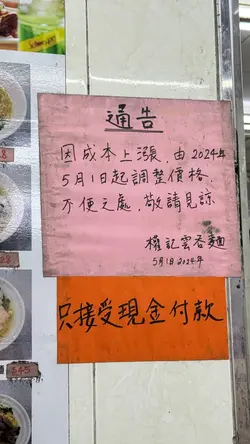 通告
因成本上漲，由2024年
5月1日起調整價格，
不便之處，敬請見諒
權記雲吞麵
5月1日2024年
只接受現金付款
$45